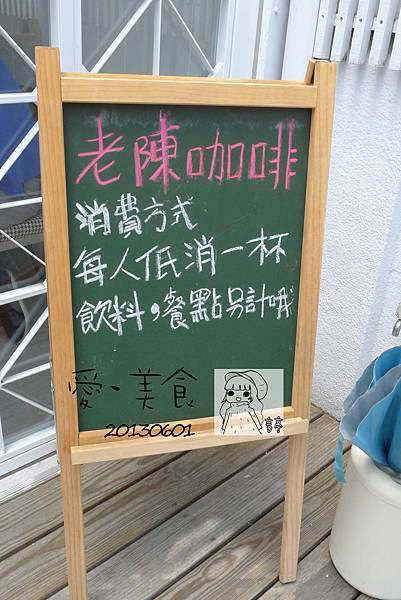 老陳咖啡
消費方式
每人低消一杯
飲料,餐點另計哦
愛·美食
20130601